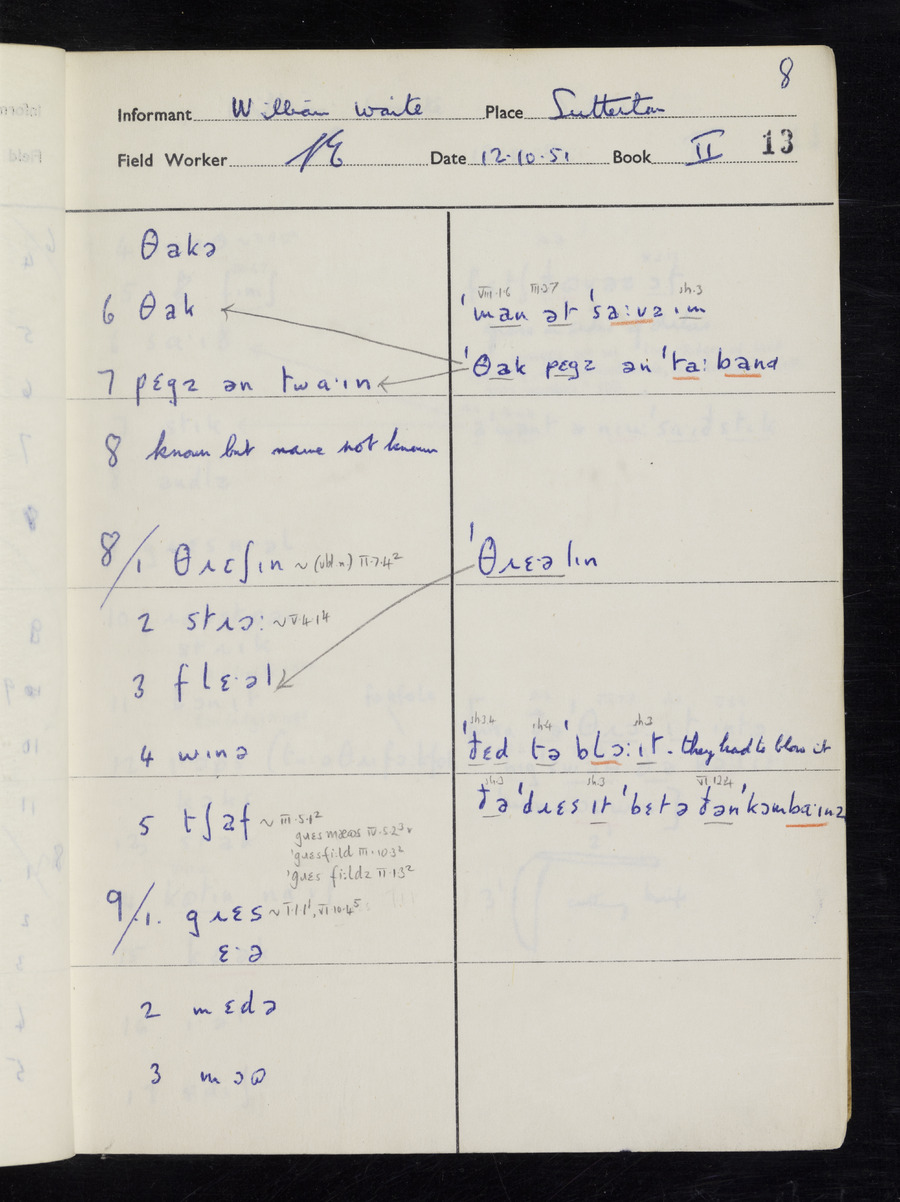 8
Informant William Waite Place Sutterton
Field Worker Date 12.10.51 Book II 13
θakə
6 θak
7 pɛgz ən twa·ɪn
8 known but name not known
8/1 θɹɛʃɪn ~ (vbl.n.) II.7.4²
2 stɹɔ: ~ V.4.14
3 flɛ·əl
4 wɪnə
5 tʃaf ~ III.5.1²
IV.5.2³
ˈgɹɛsfi:ld III.10.3²
ˈgɹɛs fi:ldz II.1.3²
9/1. gɹɛs ~ I.1.1¹, VI.10.4⁵
ɛ·ə
2 mɛdə
3 mɔʊ
VIII.1.6 sh.3
ˈman ət ˈsa:vz ɪm
ˈθak pɛgz ən ˈta:band
ˈθɹɛ·əlɪn
sh.3.4 sh.4 sh.3
ˈðɛd tə ˈblɔ:ɪt - they had to blow it
sh.3 sh.3
ðəˈdɹɛs ɪt ˈbɛtə ðən ˈkəmba·ɪnz